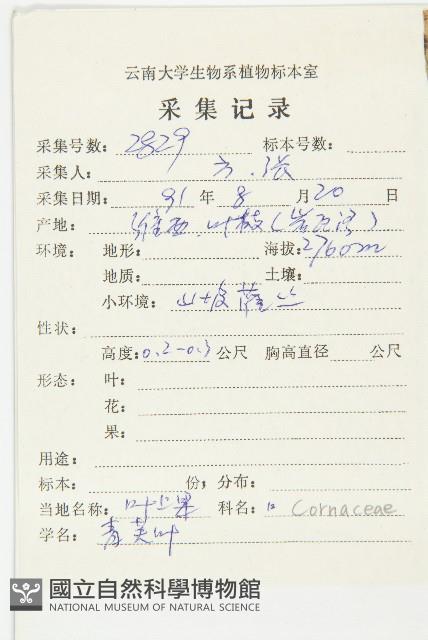 云南大学生物系植物标本室
采集记录
采集号数: 2829 标本号数:
采集人: 方、张
采集日期: 91 年 8 月 20 日
产地: 维西、叶枝(岩瓦洛)
环境: 地形: 海拔: 2760m
地质: 土壤:
小环境: 山坡灌丛
性状:
高度: 0.2-0.3 公尺 胸高直径 公尺
形态: 叶:
花:
果:
用途:
标本: 份, 分布:
当地名称: 叶上果 科名: Cornaceae
学名: 青荚叶
國立自然科學博物館
NATIONAL MUSEUM OF NATURAL SCIENCE